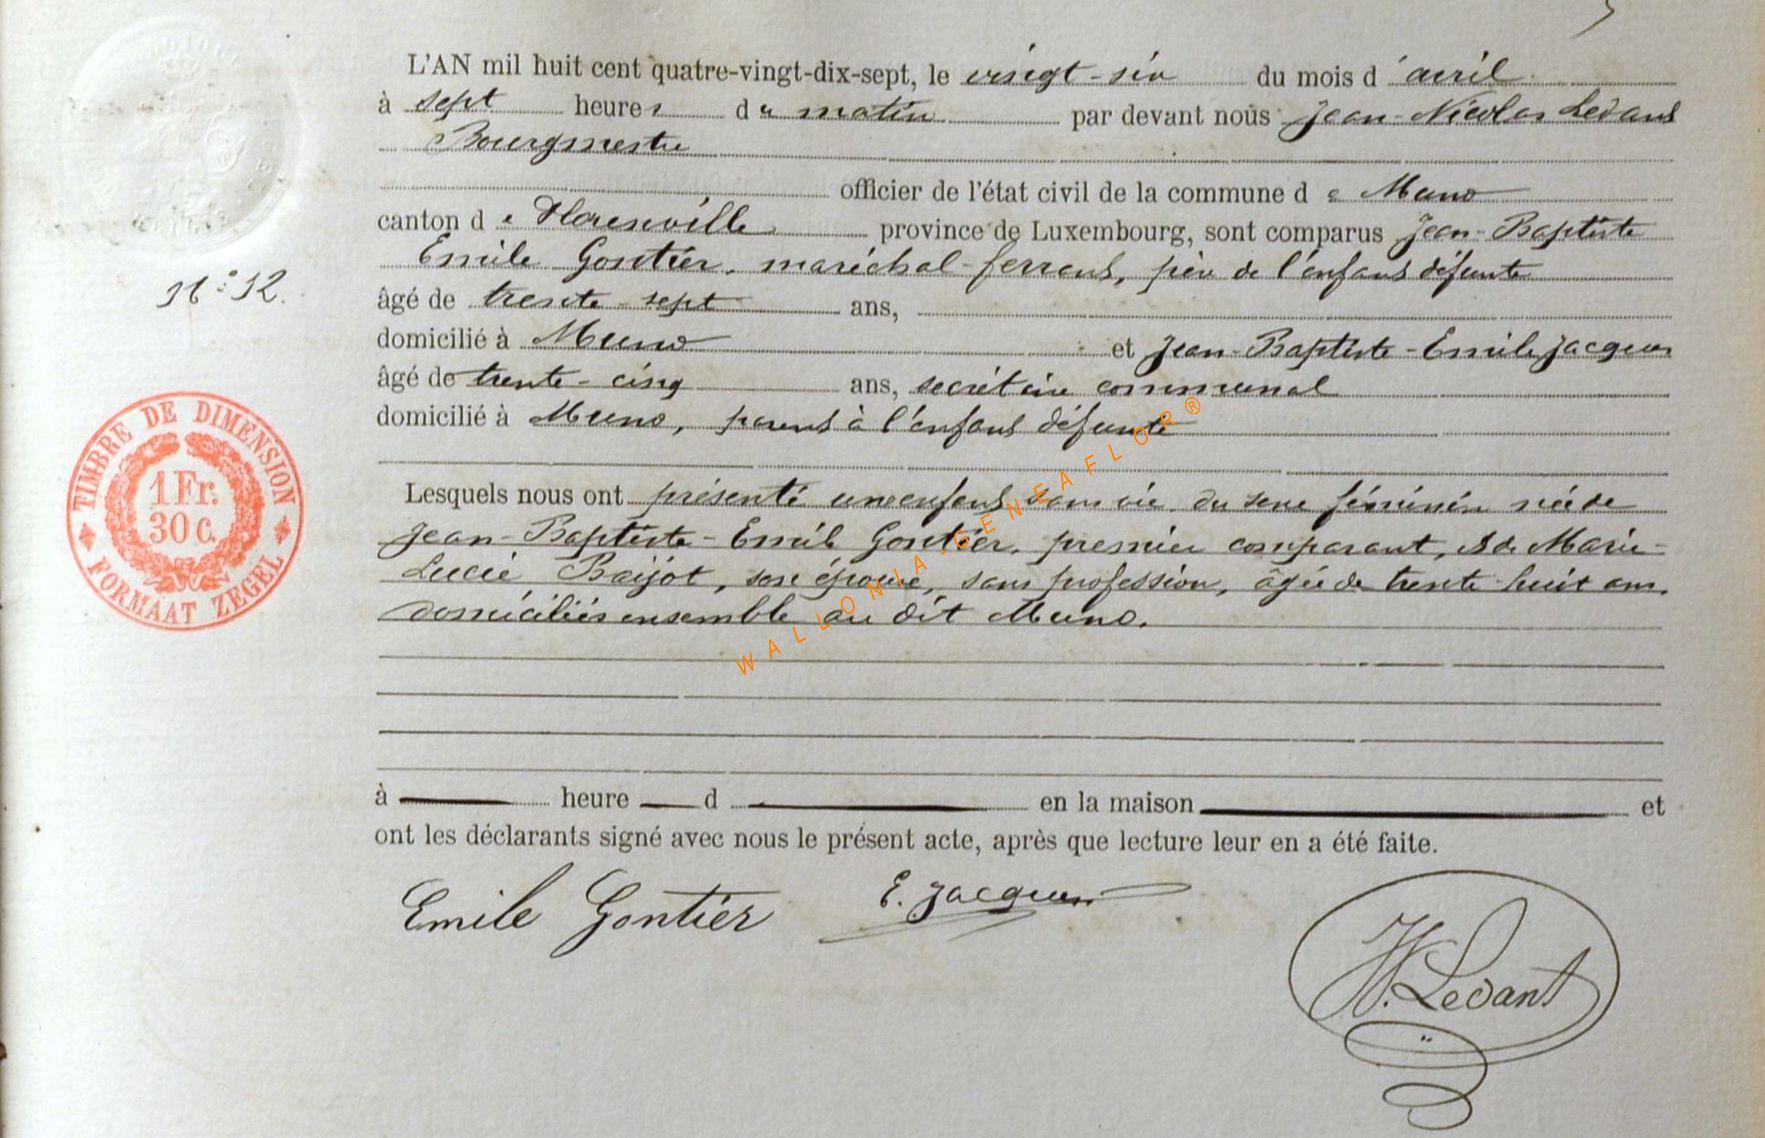 L'AN mil huit cent quatre-vingt-dix-sept, le vingt-six du mois d'avril
à sept heures du matin par devant nous Jean-Nicolas Ledant
Bourgmestre
officier de l'état civil de la commune de Muno
canton de Florenville province de Luxembourg, sont comparus Jean-Baptiste
Emile Gontier, maréchal-ferrant, père de l'enfant défunte
N° 12.
âgé de trente-sept ans,
domicilié à Muno et Jean-Baptiste-Emile Jacques
âgé de trente-cinq ans, secrétaire communal
domicilié à Muno, parent à l'enfant défunte
TIMBRE DE DIMENSION
1 Fr.
30 c.
FORMAAT ZEGEL
Lesquels nous ont présenté une enfant sans vie du sexe féminin née de
Jean-Baptiste-Emile Gontier, premier comparant, et de Marie
Lucie Baijot, son épouse, sans profession, âgée de trente-huit ans,
domiciliés ensemble au dit Muno.
WALLONIA-GENEAFLOR®
à heure d en la maison et
ont les déclarants signé avec nous le présent acte, après que lecture leur en a été faite.
Emile Gontier E. Jacques
N. Ledant